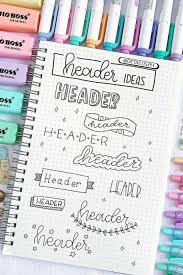 header IDEAS
HEADER
header
H-E-A-D-E-R
header
Header
HEADER
header
HEADER
header
BOSS
ORIGINAL
BOSS